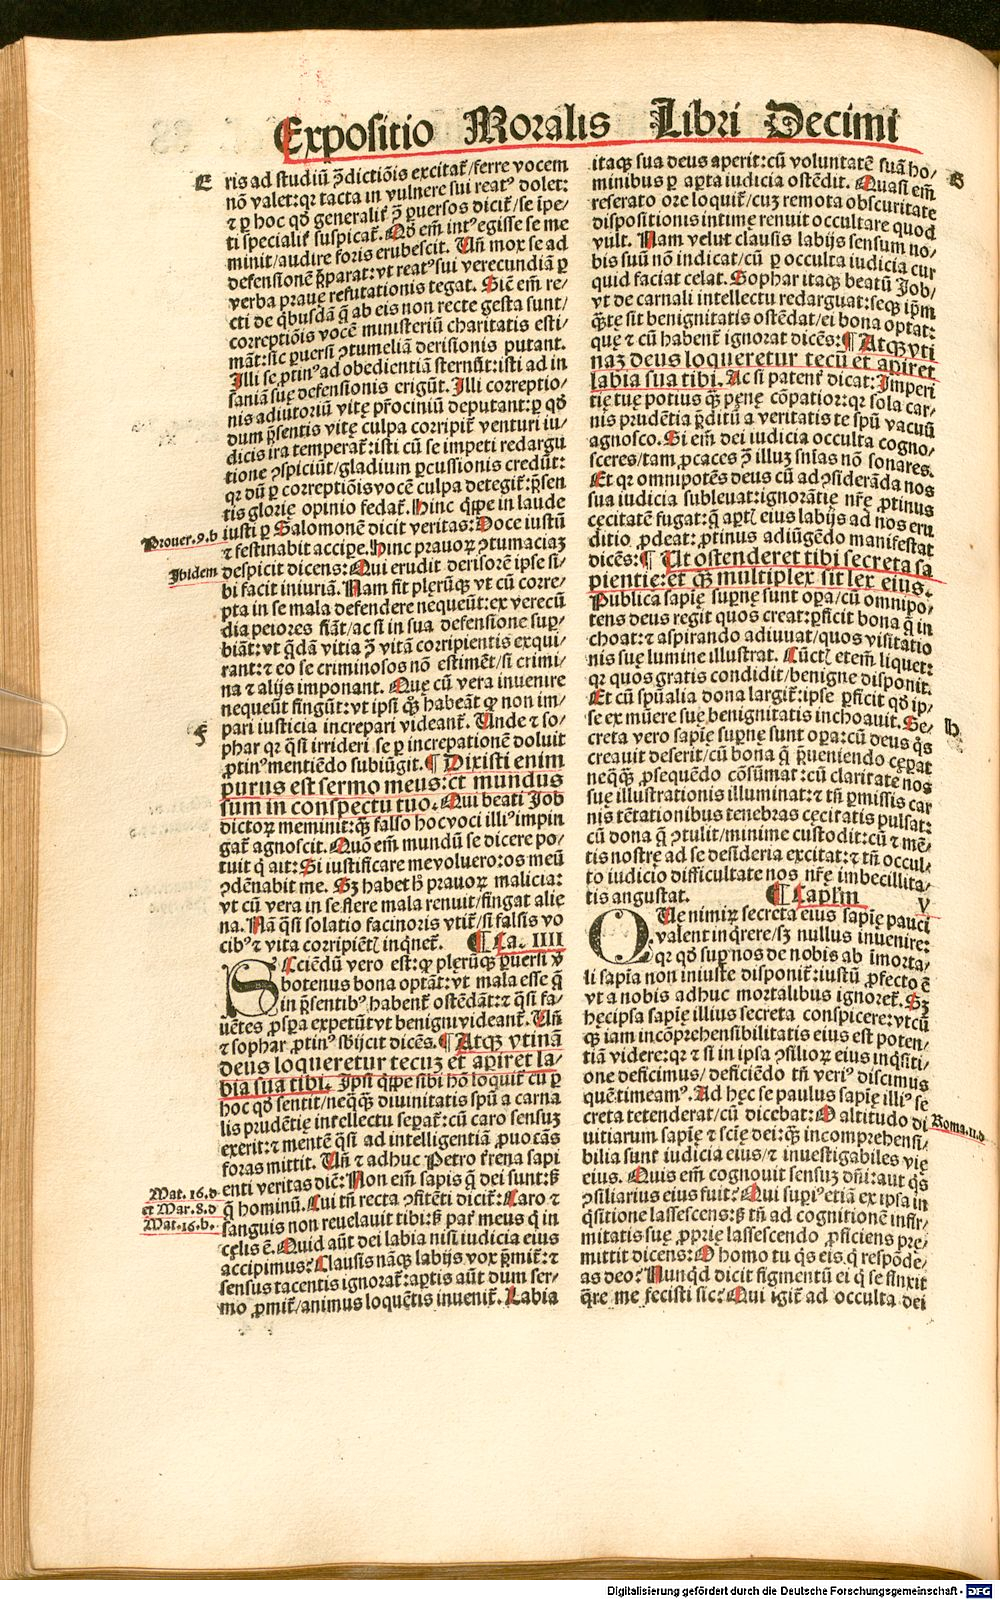 Expositio Moralis Libri Decimi
E
ris ad studiū p̄dictiōis excitat᷑/ferre vocem
nō valet:qꝛ tacta in vulnere sui reatꝰ dolet:
⁊ ꝑ hoc qđ generalit᷑ p̄ ꝑuersos dicit᷑/se īpe/
ti specialit᷑ suspicat᷑. Qđ em̄ intꝰ egisse se me
minit/audire foris erubescit. Uñ mox se ad
defensionē p̄parat:vt reatꝰ sui verecundiā ꝑ
verba praue refutationis tegat. Sic̄ em̄ re/
cti de qͥbusdā q̄ ab eis non recte gesta sunt/
correptiōis vocē ministeriū charitatis esti/
māt:sic ꝑuersi ꝯtumeliā derisionis putant.
Illi se ꝓtinꝰ ad obedientiā sternūt:isti ad in
saniā suę defensionis erigūt. Illi correptio/
nis adiutoriū vitę pr̄ociniū deputant:ꝑ qđ
dum p̄sentis vitę culpa corripit᷑ venturi iu/
dicis ira temperat᷑:isti cū se impeti redargu
tione ꝯspiciūt/gladium ꝑcussionis credūt:
qꝛ dū ꝑ correptiōis vocē culpa detegit᷑:p̄sen
tis glorię opinio fedat᷑. Hinc qͥppe in laude
Prouer.9.b
iusti ꝑ Salomonē dicit veritas:Doce iustū
⁊ festinabit accipe. Hinc prauoꝝ ꝯtumaciaꝫ
Ibidem
despicit dicens:Qui erudit derisorē ipse si/
bi facit iniuriā. Nam fit plęrūqꝫ vt cū corre/
pta in se mala defendere nequeūt:ex verecū
dia peiores fiāt/ac si in sua defensione suꝑ/
biāt:vt q̄dā vitia p̄ vitā corripientis exqui/
rant:⁊ eo se criminosos nō estimēt/si crimi/
na ⁊ alijs imponant. Quę cū vera inuenire
nequeūt fingūt:vt ipsi qͥꝫ habeāt ꝙ non im/
f
pari iusticia increpari videant᷑. Unde ⁊ so/
phar qꝛ qͣsi irrideri se ꝑ increpationē doluit
ꝓtinꝰ mentiēdo subiūgit. ¶ Dixisti enim
purus est sermo meus:et mundus
sum in conspectu tuo. Qui beati Job
dictoꝝ meminit:qͣꝫ falso hoc voci illiꝰ impin
gat᷑ agnoscit. Quō em̄ mundū se dicere po/
tuit q̄ ait:Si iustificare me voluero:os meū
ꝯdēnabit me. Sꝫ habet h̄ prauoꝝ malicia:
vt cū vera in se flere mala renuit/fingat alię
na. Nā qͣsi solatio facinoris vtit᷑/si falsis vo
cibꝰ ⁊ vita corripiētꝭ inqͥnet᷑. ¶ Ca. IIII
Sciēdū vero est:ꝙ plęrūqꝫ ꝑuersi ꝟ
botenus bona optāt:vt mala esse q̄
in p̄sentibꝰ habent᷑ ostēdāt:⁊ qͣsi fa/
uētes ꝓspa expetūt vt benigni videant᷑. Uñ
⁊ sophar ꝓtinꝰ sb̄ijcit dicēs. ¶ Atqꝫ vtinā
deus loqueretur tecuꝫ et apiret la/
bia sua tibi. Ipsi qͥppe sibi hō loquit᷑ cū ꝑ
hoc qđ sentit/neqͣꝫ diuinitatis spū a carna
lis prudētię intellectu sepat᷑:cū caro sensuꝫ
exerit:⁊ mentē qͣsi ad intelligentiā ꝓuocās
foras mittit. Uñ ⁊ adhuc Petro tr̄ena sapi
Mat. 16.d
enti veritas dic̄:Non em̄ sapis q̄ dei sunt:ß
et Mar.8.d
q̄ hominū. Cui tñ recta ꝯfitēti dicit:Caro ⁊
Mat.16.b.
sanguis non reuelauit tibi:ß pat᷑ meus q̄ in
cęlis ē. Quid aūt dei labia nisi iudicia eius
accipimus? Clausis nāqꝫ labijs vox p̄mit᷑:⁊
sensus tacentis ignorat᷑:aꝑtis aūt dum ser/
mo ꝓmit᷑/animus loquētis inuenit᷑. Labia
itaqꝫ sua deus aperit:cū voluntatē suā ho/
G
minibus ꝑ aꝑta iudicia ostēdit. Quasi em̄
reserato ore loquit᷑/cuꝫ remota obscuritate
dispositionis intimę renuit occultare quod
vult. Nam velut clausis labijs sensum no/
bis suū nō indicat/cū ꝑ occulta iudicia cur
quid faciat celat. Sophar itaqꝫ beatū Job/
vt de carnali intellectu redarguat:seqꝫ ip̄m
qͣte sit benignitatis ostēdat/ei bona optat:
quę ⁊ cū habent᷑ ignorat dicēs: ¶ Atqꝫ vti
naꝫ deus loqueretur tecū et apiret
labia sua tibi. Ac si patent᷑ dicat:Imperi
tię tuę potius qͣꝫ pęnę cōpatior:qꝛ sola car/
nis prudētia p̄ditū a veritatis te spū vacuū
agnosco. Si em̄ dei iudicia occulta cogno/
sceres/tam ꝓcaces p̄ illuꝫ snīas nō sonares.
Et qꝛ omnipotēs deus cū ad ꝯsiderāda nos
sua iudicia subleuat:ignorātię nr̄ę ꝓtinus
cęcitatē fugat:q̄ aꝑtꝭ eius labijs ad nos eru
ditio ꝓdeat:ꝓtinus adiūgēdo manifestat
dicēs: ¶ Ut ostenderet tibi secreta sa
pientie:et qͣꝫ multiplex sit lex eius.
Publica sapię supnę sunt opa/cū omnipo/
tens deus regit quos creat:ꝑficit bona q̄ in
choat:⁊ aspirando adiuuat/quos visitatio
nis suę lumine illustrat. Cūctꝭ etem̄ liquet:
qꝛ quos gratis condidit/benigne disponit.
Et cū spūalia dona largit᷑:ipse ꝑficit qđ ip/
se ex mūere suę benignitatis inchoauit. Se/
h
creta vero sapię supnę sunt opa:cū deus qͦs
creauit deserit/cū bona q̄ p̄ueniendo cęꝑat
neqͣꝫ ꝓsequēdo cōsūmat:cū claritate nos
suę illustrationis illuminat:⁊ tñ ꝑmissis car
nis tētationibus tenebras cęcitatis pulsat:
cū dona q̄ ꝯtulit/minime custodit:cū ⁊ mē/
tis nostrę ad se desideria excitat:⁊ tñ occul/
to iudicio difficultate nos nr̄ę imbecillita/
tis angustat. ¶ Caplm̄ V
Que nimiꝝ secreta eius sapię pauci
valent inqͥrere/sꝫ nullus inuenire:
qꝛ qđ suꝑ nos de nobis ab īmorta/
li sapia non iniuste disponit᷑:iustū ꝓfecto ē
vt a nobis adhuc mortalibus ignoret᷑. Sꝫ
hęc ipsa sapię illius secreta conspicere:vtcū
qꝫ iam incōprehensibilitatis eius est poten/
tiā videre:qꝛ ⁊ si in ipsa ꝯsilioꝝ eius inqͥsiti/
one deficimus/deficiēdo tñ veriꝰ discimus
quē timeamꝰ. Ad hęc se paulus sapię illiꝰ se
creta tetenderat/cū dicebat:O altitudo di
Roma.11.d
uitiarum sapię ⁊ scię dei:qͣꝫ incomprehensi/
bilia sunt iudicia eius/⁊ inuestigabiles vię
eius. Quis em̄ cognouit sensuꝫ dn̄i:aut qͥs
ꝯsiliarius eius fuit? Qui supiꝰ etiā ex ipsa in
qͥsitione lassescens:ß tñ ad cognitionē infir/
mitatis suę ꝓprię lassescendo ꝓficiens pre/
mittit dicens:O homo tu qͥs es q̄ respōde/
as deo? Nunqͥd dicit figmentū ei q̄ se finxit
qͣre me fecisti sic? Qui igit᷑ ad occulta dei
Digitalisierung gefördert durch die Deutsche Forschungsgemeinschaft - DFG